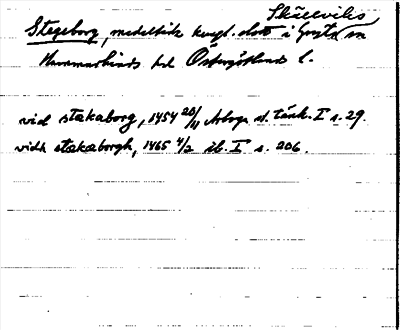 Skällviks
Stegeborg, medeltida kungl. slott i Gryts sn
Hammarkinds hd Östergötlands l.
vid stakaborg, 1454 20/11 Arboga st. tänk. I s. 29.
vidh stakaborgh, 1465 4/2 ib. I s. 206.